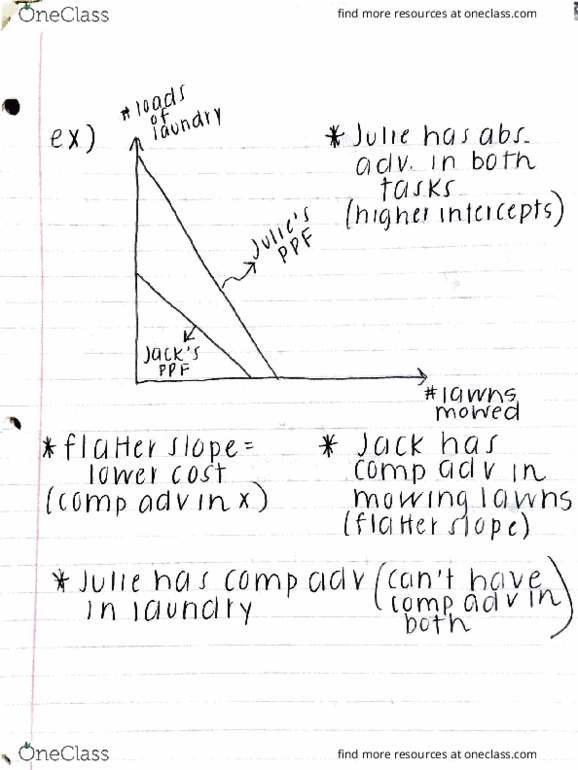 OneClass
find more resources at oneclass.com
ex)
# loads
of
laundry
* Julie has abs.
adv. in both
tasks
(higher intercepts)
Julie's
PPF
Jack's
PPF
# lawns
mowed
* flatter slope =
lower cost
(comp adv in x)
* Jack has
comp adv in
mowing lawns
(flatter slope)
* Julie has comp adv (can't have
in laundry comp adv in
both)
OneClass
find more resources at oneclass.com